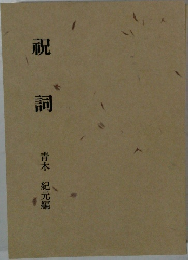 祝詞
青木紀元編